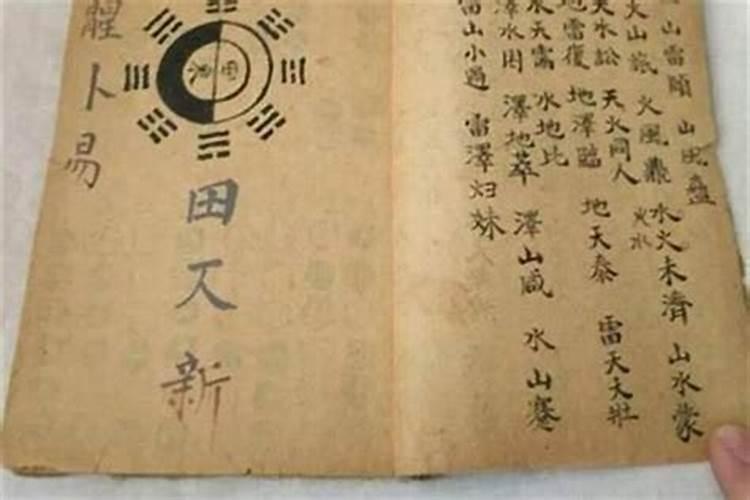 山雷頤 山風蠱
火山旅 火風鼎 火水 水火未濟 山水蒙
天水訟 天火同人 地天泰 雷天大壯
地雷復 地澤臨
水天需 水地比
澤水困 澤地萃 澤山咸 水山蹇
雷山小過 雷澤归妹
田 新
卜易